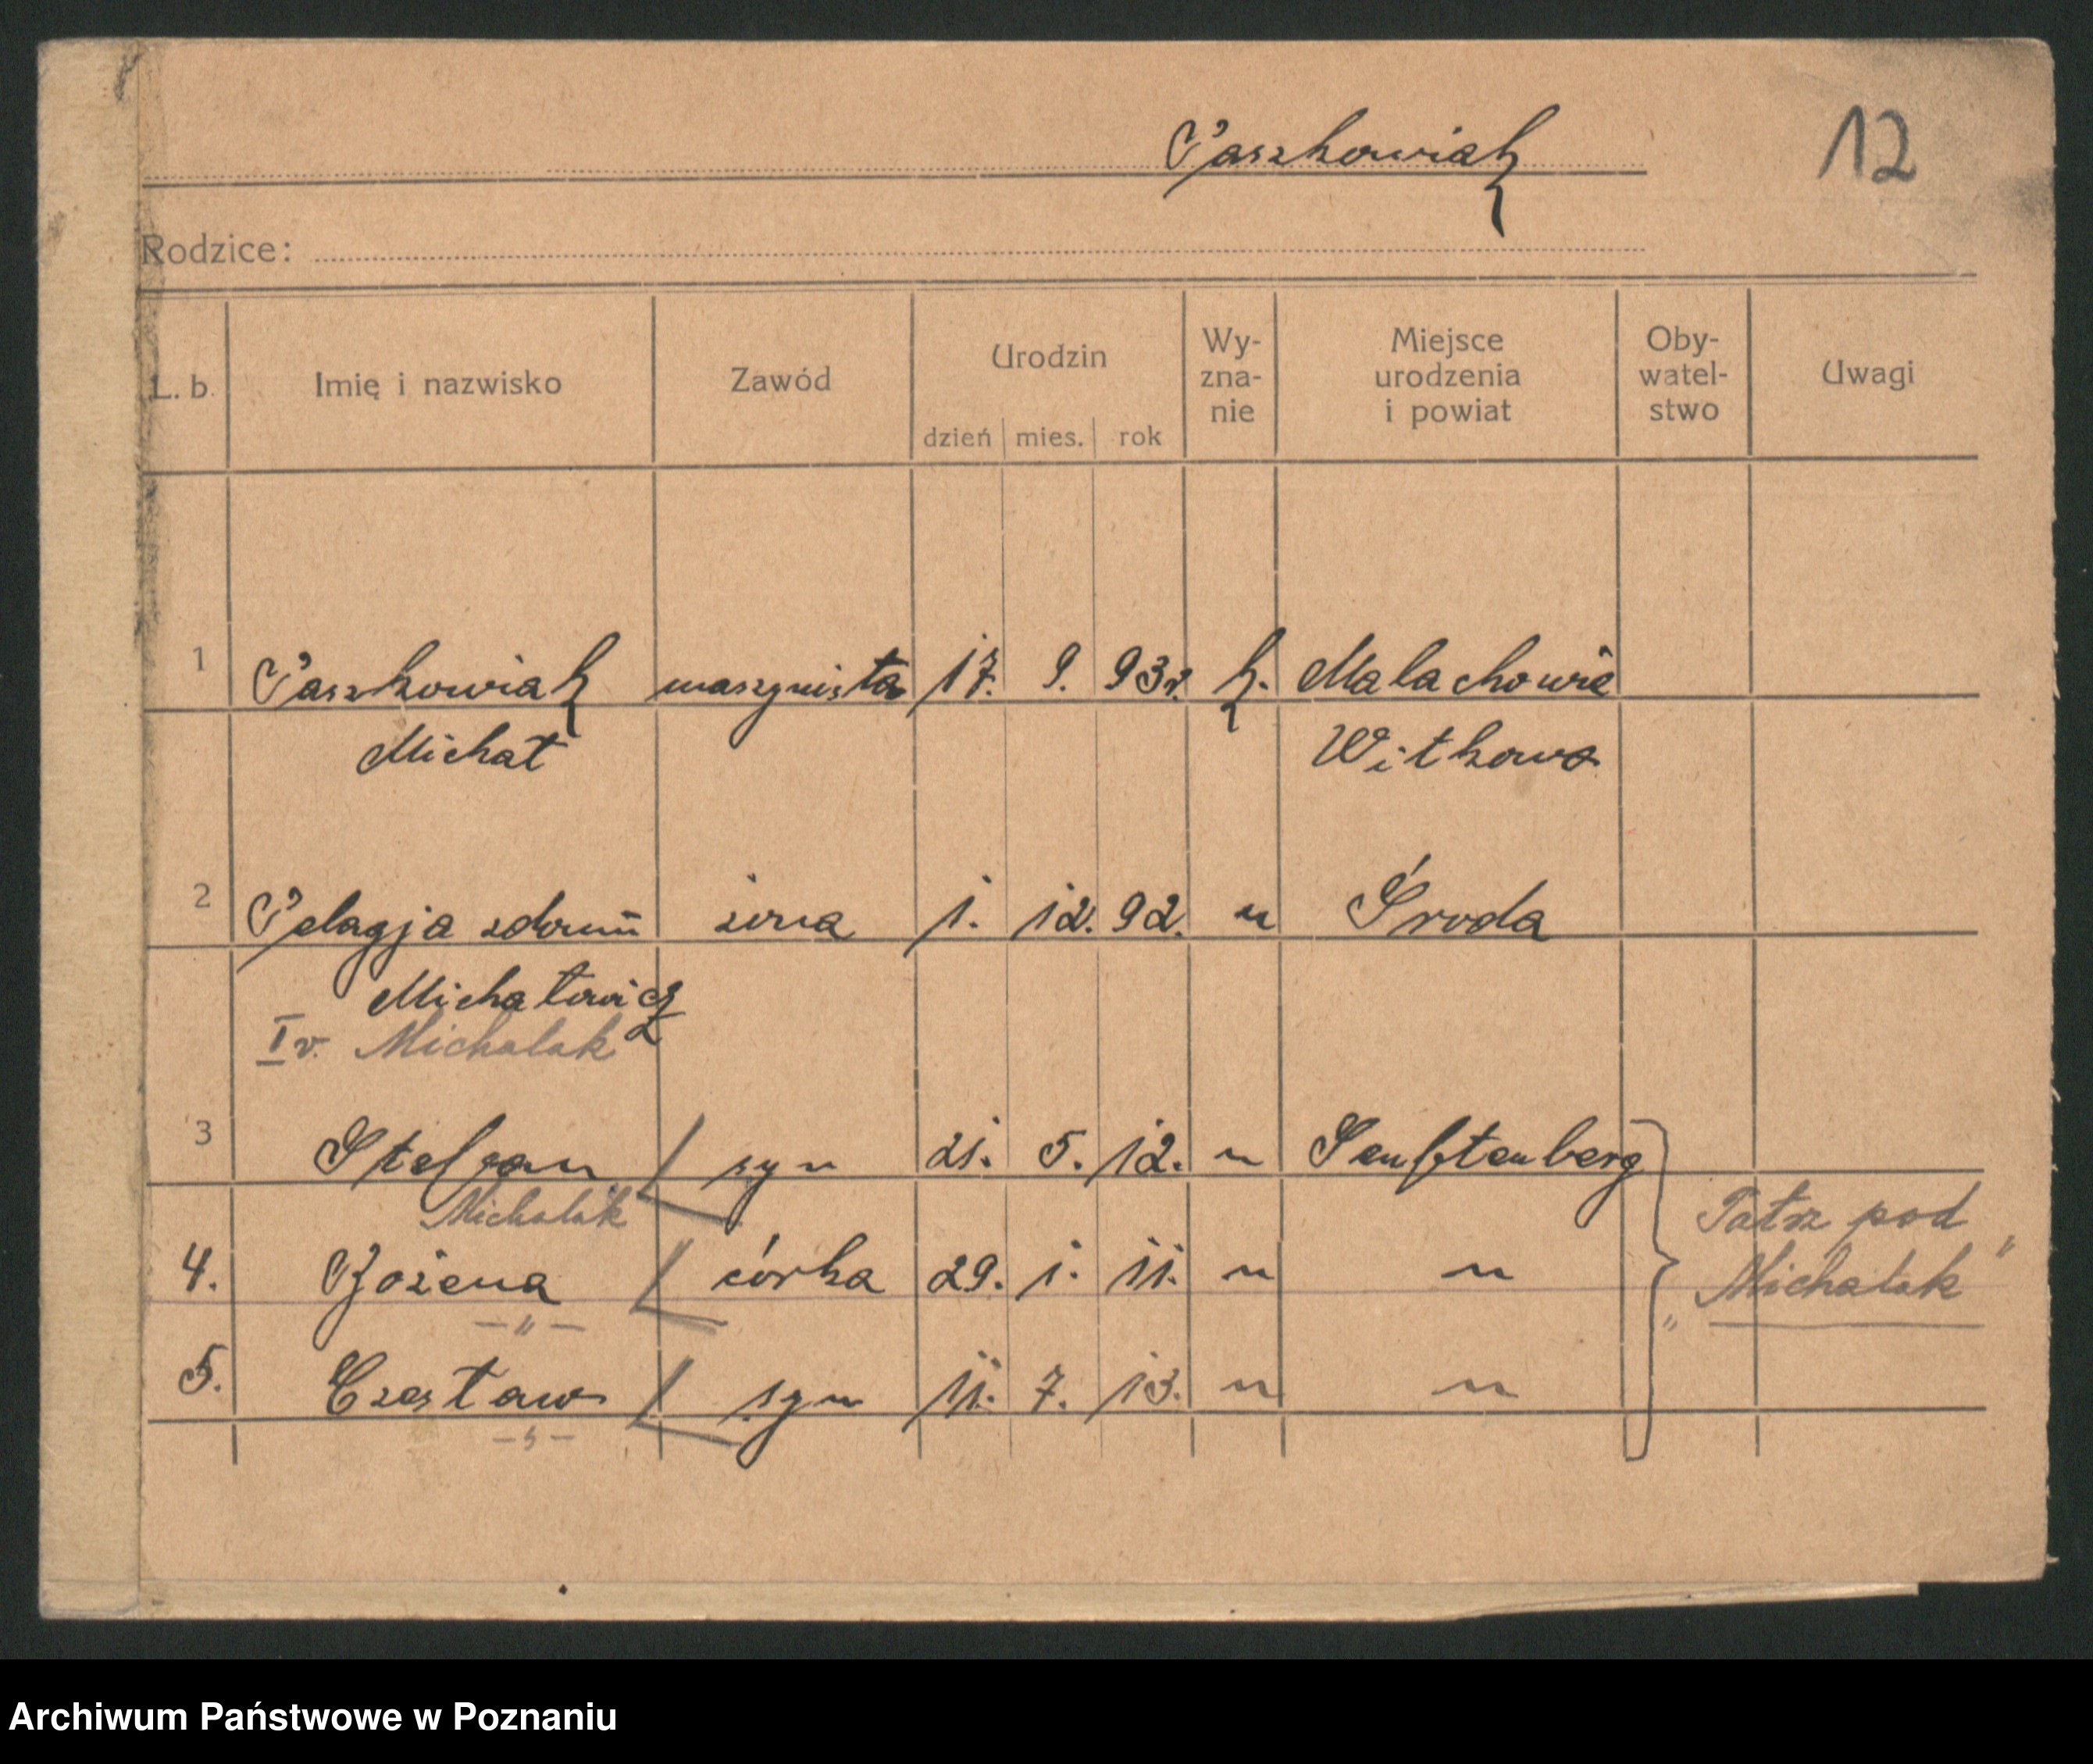 Paszkowiak
12
Rodzice:
L. b. Imię i nazwisko Zawód Urodzin dzień mies. rok Wy-zna-nie Miejsce urodzenia i powiat Oby-watel-stwo Uwagi
1 Paszkowiak maszynista 17. 9. 93r. k. Malachowie
Michał Witkowo
2 Pelagja z domu żona 1. 12. 92. " Środa
Michałowicz
I v. Michalak
3 Stefan syn 21. 5. 12. " Senftenberg
Michalak Patrz pod
4. Bożena córka 29. 1. 11. " "
- " - "Michalak"
5. Czesław syn 11. 7. 13. " "
- " -
Archiwum Państwowe w Poznaniu